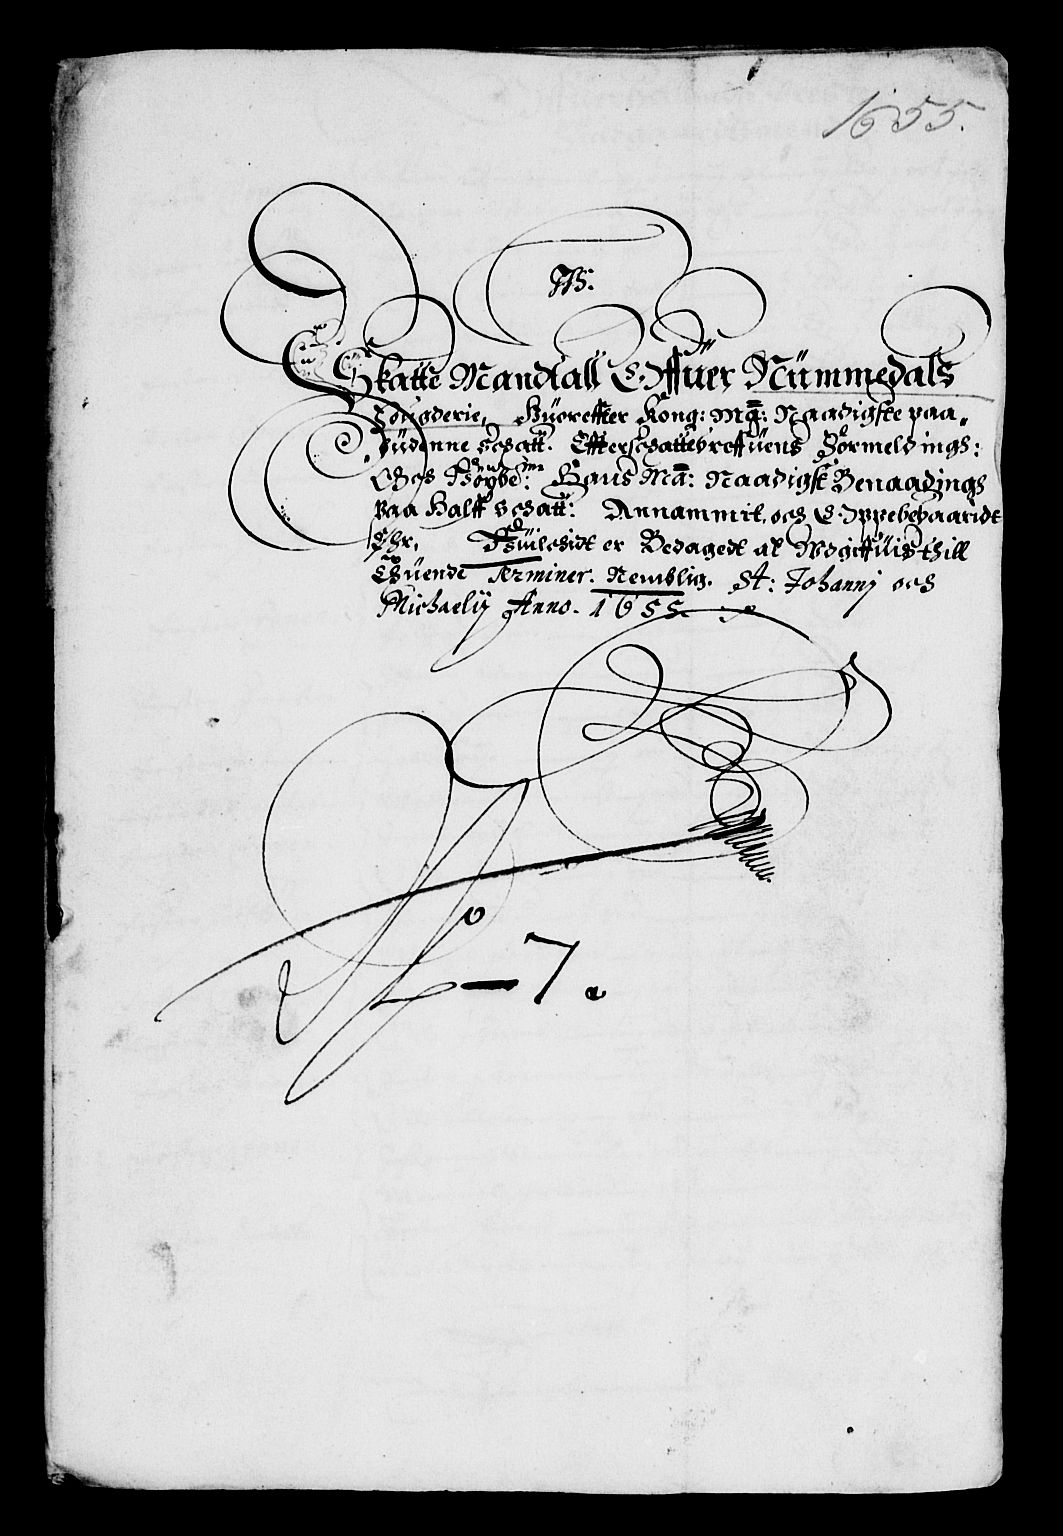 1655.
Skatte Mandtall Offuer Nümmedals
Fougderie, Huoreffter Kong: Maÿ: Naadigste paa„
büdenne schatt. Effter schattebreffuens Formeldings:
Och Hans Ma: Naadigst Benaadings
paa Halff schatt: Annammit, och Oppebebaaridt
Ehr, Huilchidt er Bedagedt at Wdgiffuis thill
Thuende Terminer. Nemblig. St: Johannj och
Michaelij Anno. 1655
No - 7.